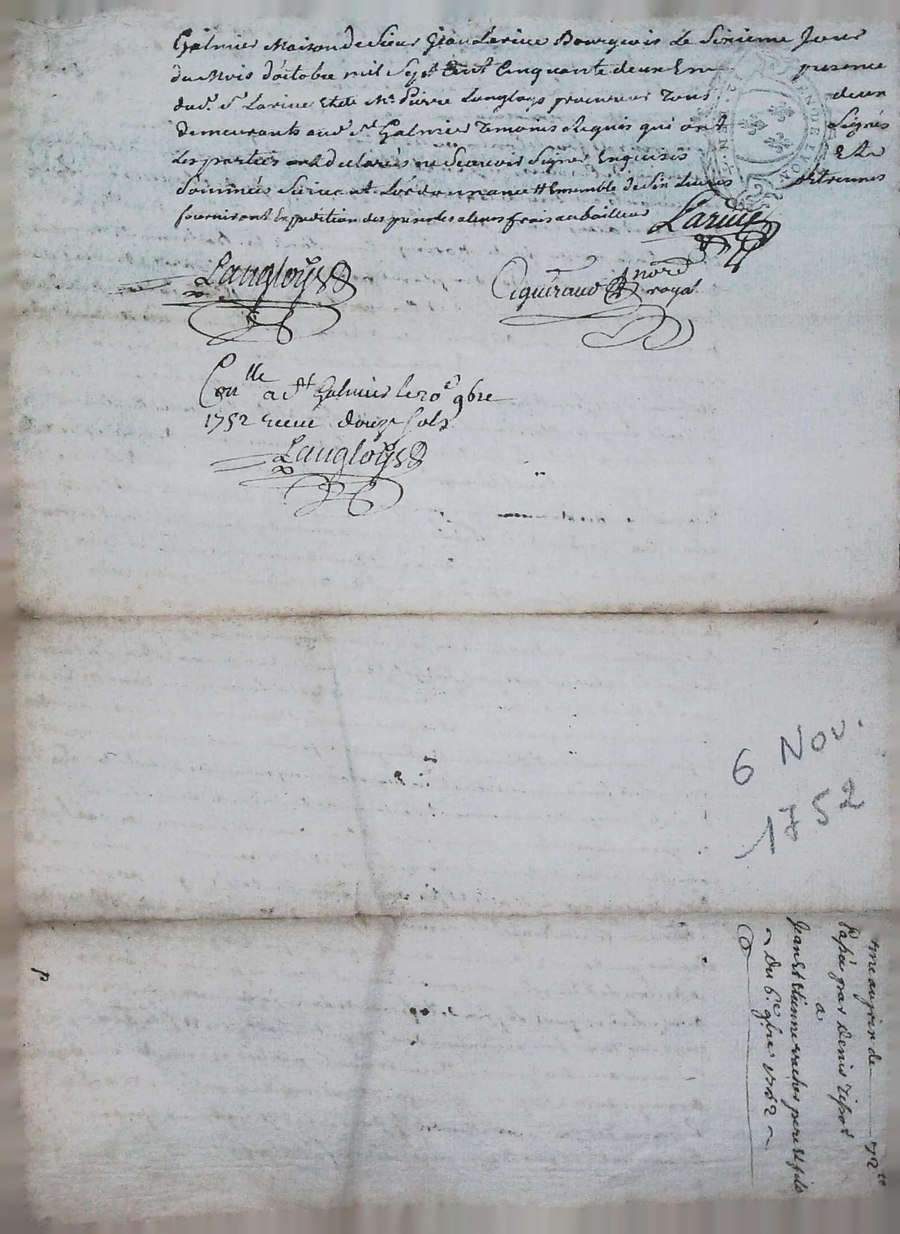 Galmier Maison de Sieur Jean Larive Bourgeois Le Sixieme Jour
du Mois d'octobre mil Sept Cent Cinquante deux En presence
dud. Sr. Larive Et de Me. Pierre Langloys procureur Tous deux
demeurants aud. St. Galmier Temoins Requis qui ont Signes
Les parties ont declarés ne Scavoir Signer Enquises Et
Sommées Suivant Lordonnance Ensemble de Six Livres detrennes
fourniront Expedition des presentes a leurs frais au bailleur
Larive
Langloys
nore.
royal
Conlle a St Galmier le 20e 9bre
1752 receu douze sols
Langloys
6 Nov.
1752
de 72 tt
Passé par Denis
a
Jean Et Etienne pere Et fils
Du 6e 9bre 1752